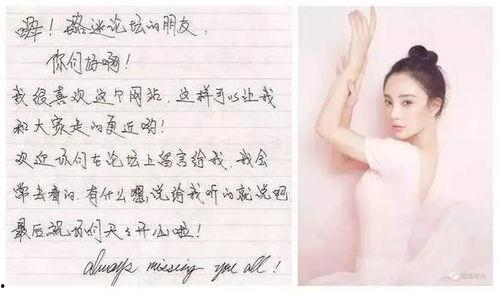 嗨！路迷论坛的朋友，
你们好啊！
我很喜欢这个网站，这样可以让我
和大家走的更近哟！
欢迎你们在论坛上留言给我，我会
常去看的，有什么想说给我听的就说吧
最后祝你们天天开心啦！
always missing you all!